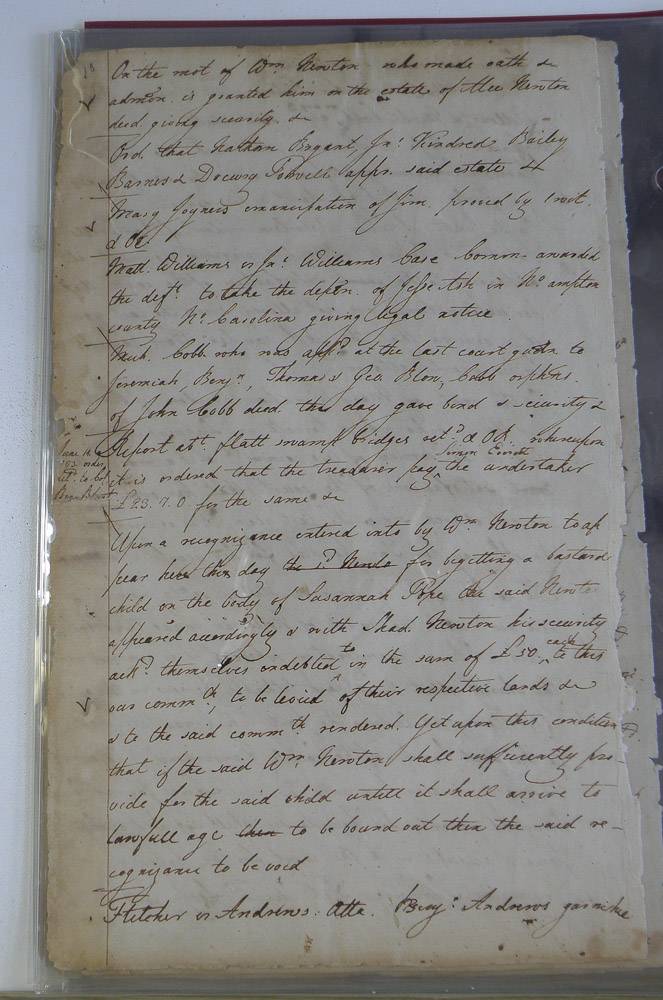 18
On the mot of Wm. Newton who made oath &
admon. is granted him on the estate of Newton
decd. giving security &
Ord. that Nathan Bryant, Jnr. Kindred, Bailey
Barnes & Drewry appr. said estate &
Mary Joyners emancipation of Jim proved by 1 wit.
& OR.
Matt. Williams vs Jnr. Williams Case Comon awarded
the deft. to take the depon. of Jesse Ash in No. ampton
county No. Carolina giving legal notice
Mich. Cobb who was appd. at the last court guardn to
Jeremiah, Benjn., Thomas & Geo. Blow, Cobb orphns.
of John Cobb decd. this day gave bond & security &
Report abt. flatt swamp bridges retd. & OR. whereupon
Simon Everitt
it is ordered that the treasurer pay ^ the undertaker
£23.7.0 for the same &
June
'03 order
Upon a recognizance entered into by Wm. Newton to ap
pear here this day the sd. Newto for begetting a bastard
child on the body of Susannah Pope the said Newto
appeared accordingly & with Shad. Newton his security
ackd. themselves indebted to in the sum of £50 each to this
our commth., to be levied of their respective lands &
& to the said commth rendered. Yet upon this condition
that if the said Wm. Newton shall sufficiently pro-
vide for the said child untill it shall arrive to
lawfull age then to be bound out then the said re-
cognizance to be void
Fletcher vs Andrews. Atta. Benj. Andrews garnishe